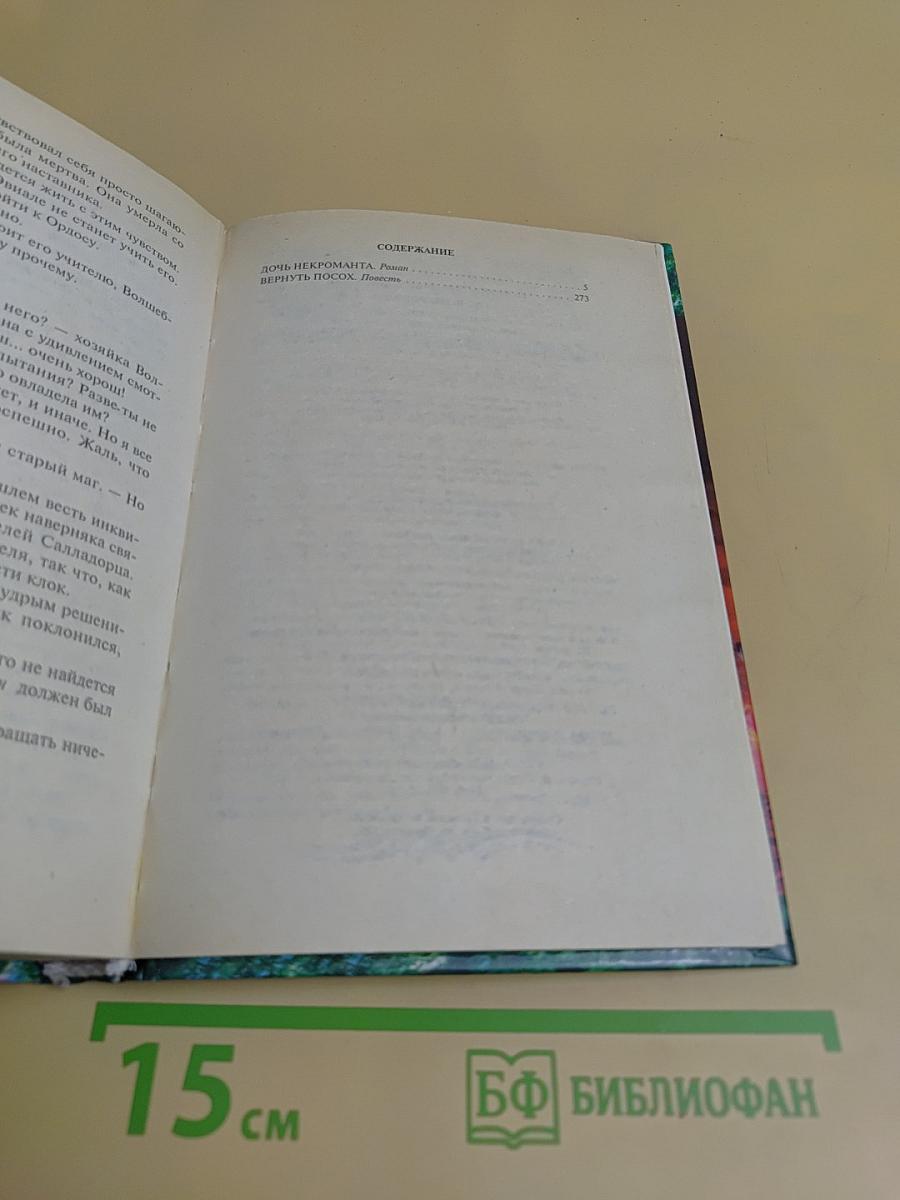 вствовал себя просто шагаю-
была мертва. Она умерла со
его наставника.
дется жить с этим чувством.
Эвиале не станет учить его.
ойти к Ордосу.
но.
рит его учителю, Волшеб-
у прочему.
него? — хозяйка Вол-
на с удивлением смот-
ш... очень хорош!
пытания? Разве ты не
о овладела им?
ет, и иначе. Но я все
спешно. Жаль, что
старый маг. — Но
шлем весть инкви-
ек наверняка свя-
елей Салладорца.
еля, так что, как
сти клок.
удрым решени-
к поклонился,
го не найдется
должен был
ращать ниче-
СОДЕРЖАНИЕ
ДОЧЬ НЕКРОМАНТА. Роман . . . . . . . . . . 5
ВЕРНУТЬ ПОСОХ. Повесть . . . . . . . . . . 273
15 см
БФ БИБЛИОФАН